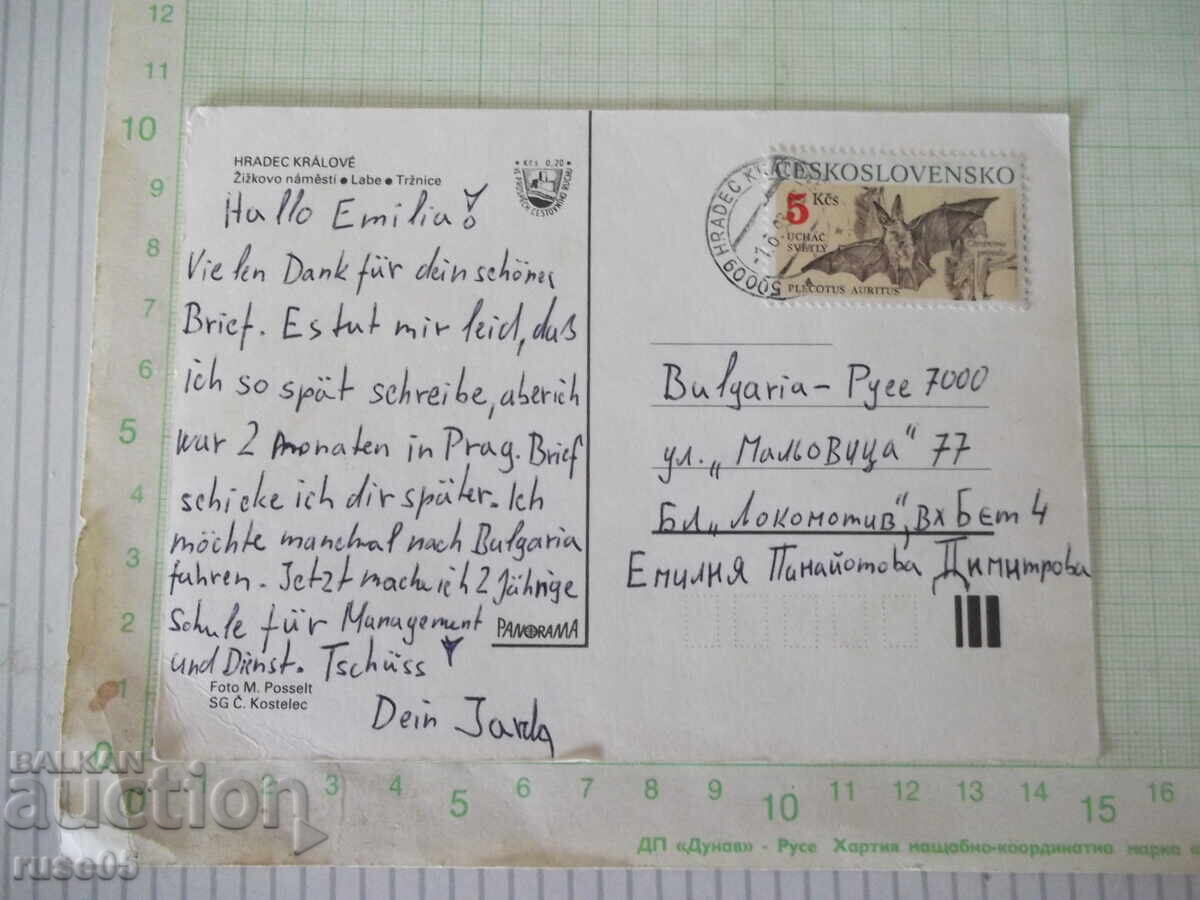 HRADEC KRÁLOVÉ
Žižkovo náměstí ● Labe ● Tržnice
Kčs 0,20
VE PROSPĚCH CESTOVNÍHO RUCHU
Hallo Emilia!
Vielen Dank für dein schönes
Brief. Es tut mir leid, daß
ich so spät schreibe, aber ich
war 2 Monaten in Prag. Brief
schicke ich dir später. Ich
möchte manchal nach Bulgaria
fahren. Jetzt mache ich 2 Jährige
Schule für Management
und Dienst. Tschüss
Dein Jarda
Foto M. Posselt
SG Č. Kostelec
PANORAMA
50009 HRADEC KRÁLOVÉ
ČESKOSLOVENSKO
5 Kčs
UCHÁČ
SVĚTLÝ
PLECOTUS AURITUS
Bulgaria - Русе 7000
ул. „Мальовица" 77
Бл „Локомотив", вх Б ет 4
Емилия Пинайотова Димитрова
12
11
10
9
8
7
6
5
4
3
2
1
0
0 1 2 3 4 5 6 7 8 9 10 11 12 13 14 15 16
ДП «Дунав» - Русе Хартия мащабно-координатна марка
BALKAN
auction
ruse05